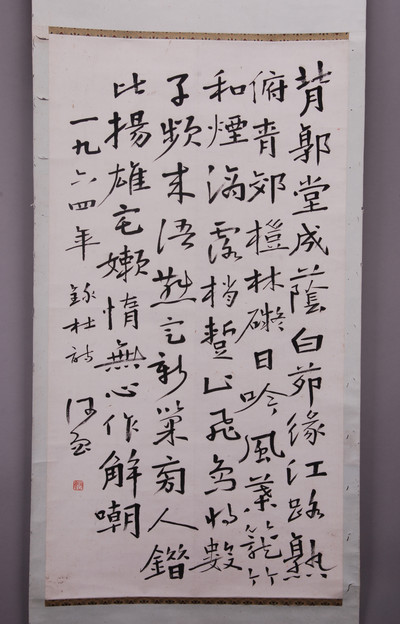 背郭堂成蔭白茆緣江路熟
俯青郊榿林礙日吟風葉籠竹
和煙滴露梢蹔止飛烏將數
子頻來語燕定新巢旁人錯
比揚雄宅嬾惰無心作解嘲
一九六四年 錄杜詩